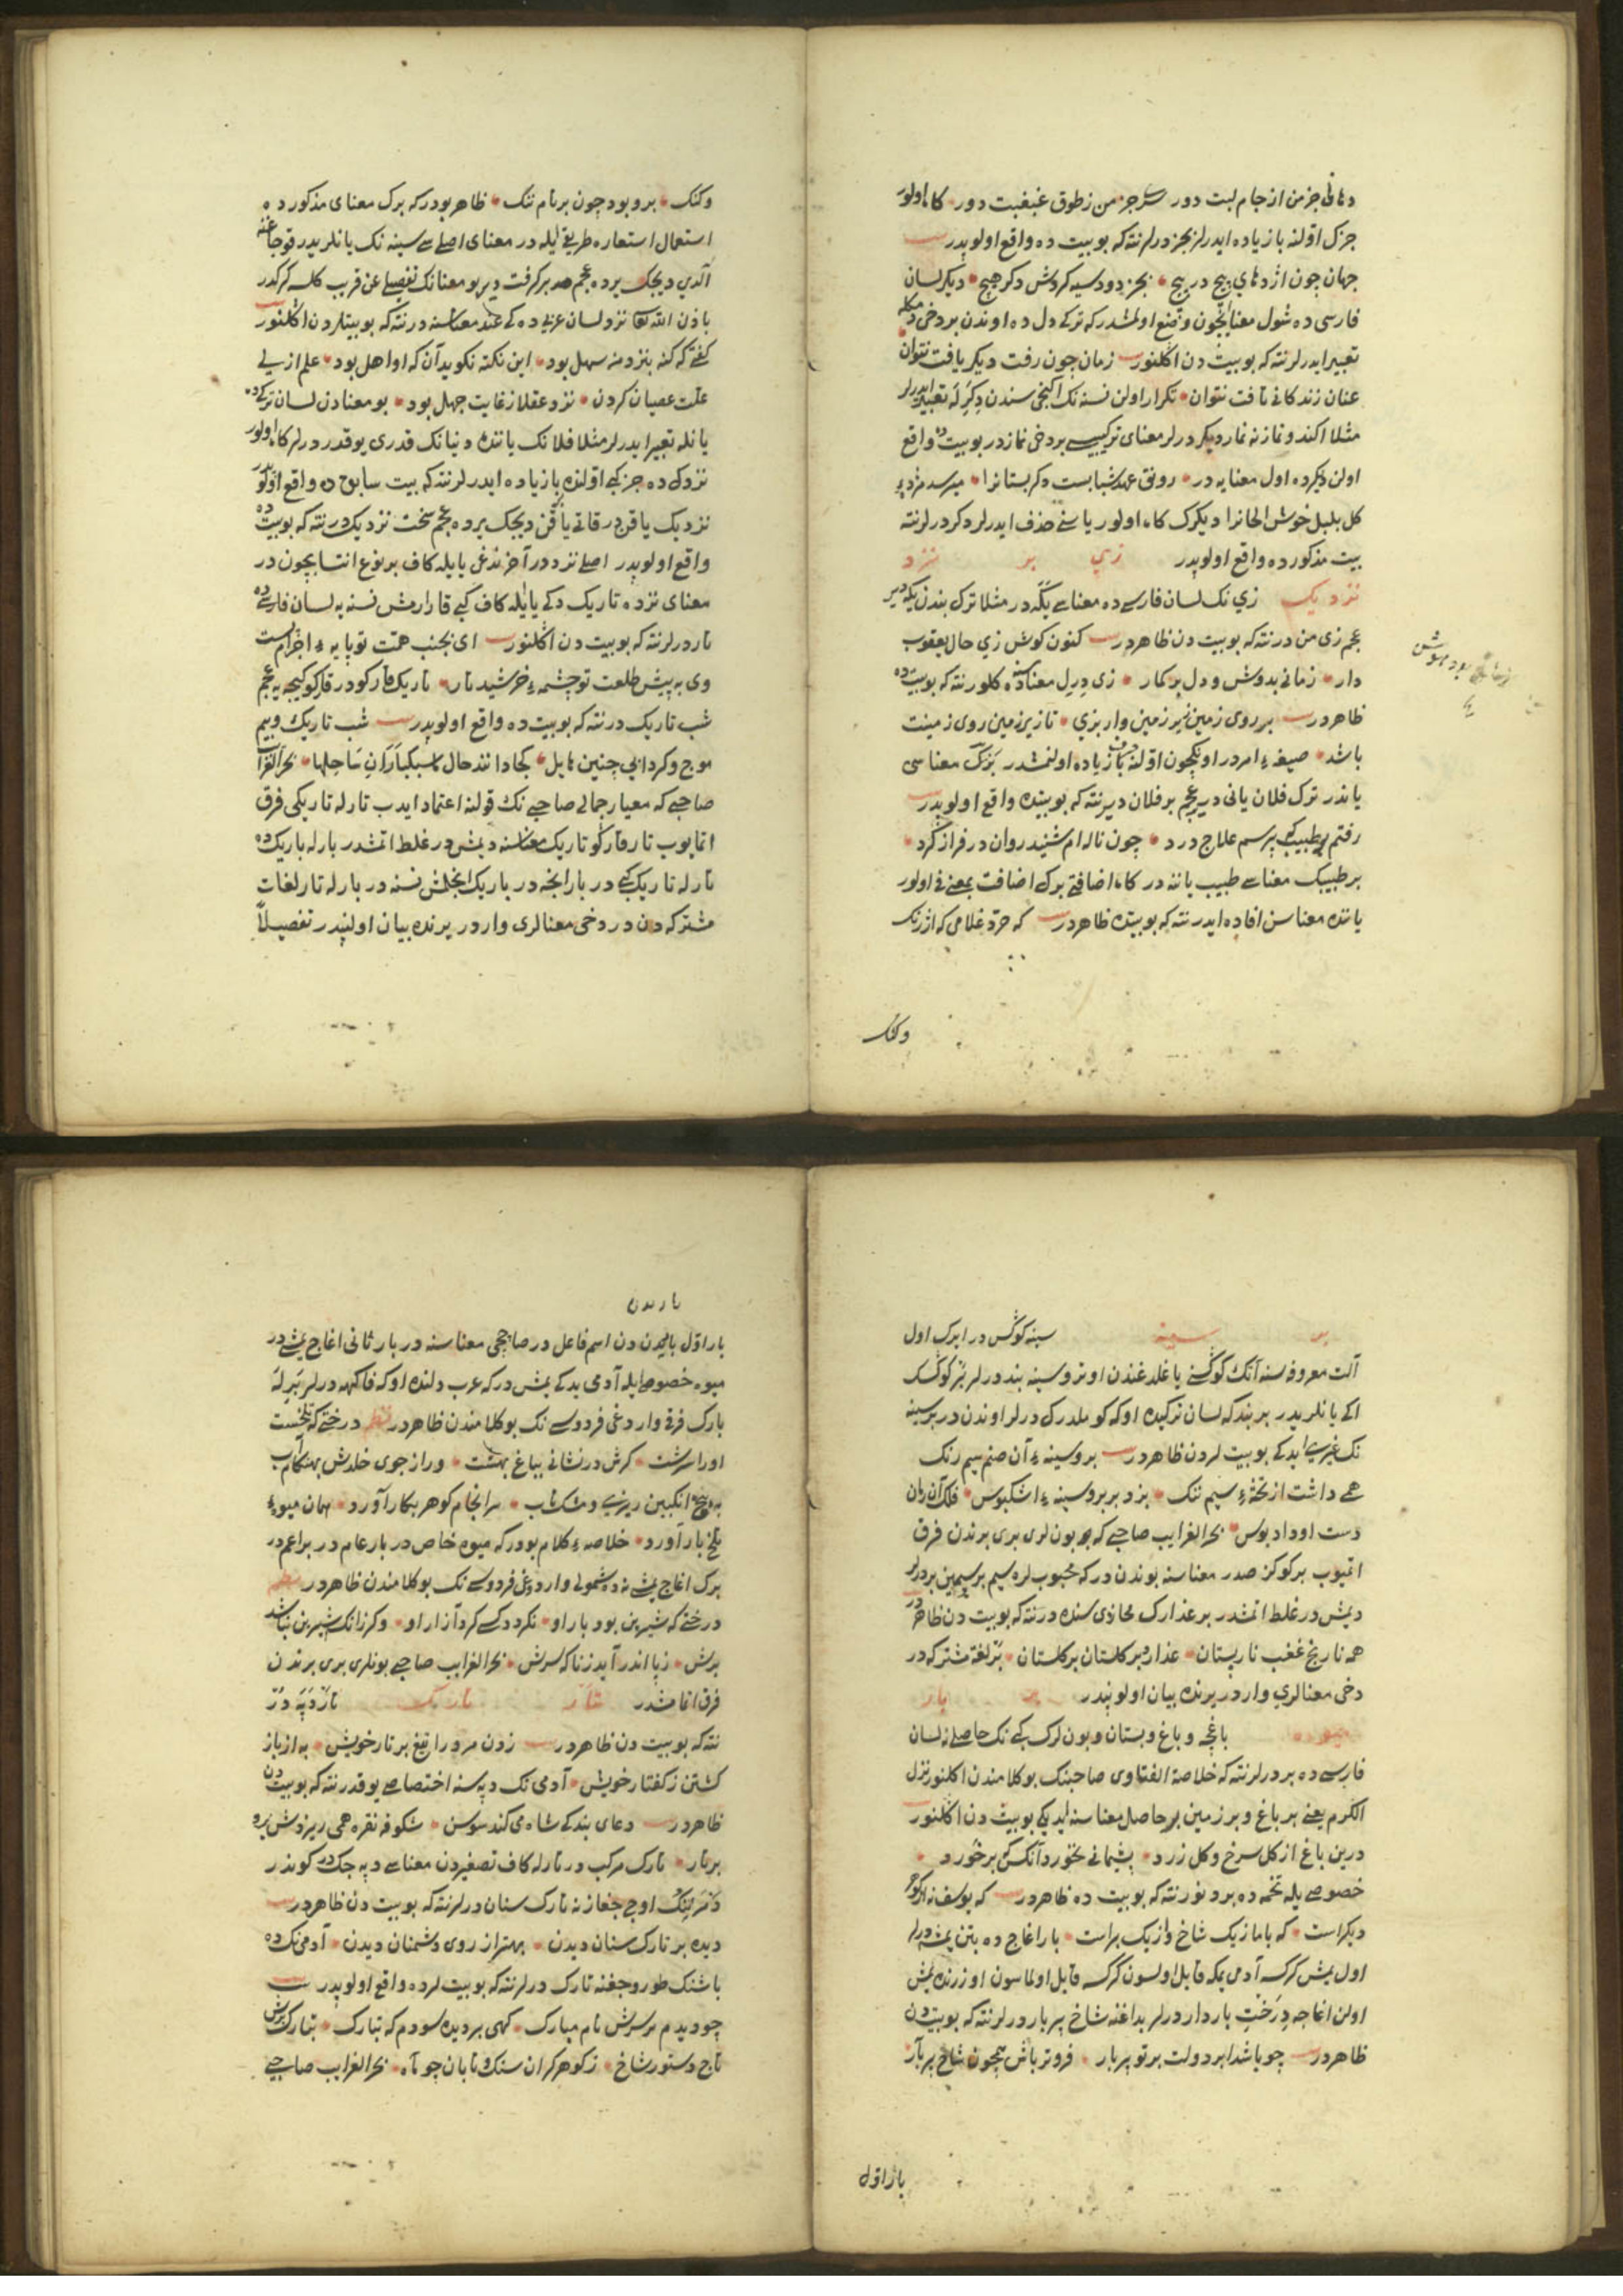 دهانی جز من از جام لبت دور سر جز من ز طوق غبغبت دور کاه اولور
جزک اولنه با زیاده ایدرلر بجز درلر نته که بو بیت ده واقع اولوبدر
جهان چون اژدهای پیچ در پیچ بجز دود سیه کردش دکر هیچ دیکر لسان
فارسی ده شول معنایچون وضع اولنمشدر که ترکی دل ده اوندن بر دخی دمکله
تعبیر ایدرلر نته که بو بیت دن اکلنور زمان چون رفت دیکر یافت نتوان
عنان زندکانی تافت نتوان تکرار اولن نسنه نک ایکنجی سندن دکر له تعبیر ایدرلر
مثلا اکندو نمازنه نماز دیکر درلر معنای ترکیبیسی بر دخی نمازدر بو بیت ده واقع
اولن دیکرده اول معنایه در رونق عهد شبابست دکر بستانرا میرسد مژدهء
کل بلبل خوش الحانرا دیکرک کاه اولور یاسنی حذف ایدرلر دکر درلر نته
بیت مذکورده واقع اولوبدر زی بر نزد
نزدیک زی نک لسان فارسی ده معناسی یکه در مثلا ترک بندن یکه دیر
عجم زی من در نته که بو بیت دن ظاهردر کنون کوش زی حال یعقوب
دار زمانی بدو هوش و دل بر کمار زی دریل معناسنه ده کلور نته که بو بیت ده
ظاهردر بر روی زمین زیر زمین وار بزی تا زیر زمین روی زمینت
باشد صیغهء امردر اونکچون اولنه با زیاده اولنمشدر بزک معناسی
یاندر ترک فلان یانی دیر عجم بر فلان دیر نته که بو بیتده واقع اولوبدر
رفتم بر طبیب کی پرسم علاج درد چون ناله ام شنید روان در فراز کرد
بر طبیبک معناسی طبیب یاننه در کاه اضافتی برک اضافت بمعنی فی اولور
یانده معناسن افاده ایدر نته که بو بیتده ظاهردر که خرد غلامی که از رنک
وکنک
وکنک بر او بود چون بر نام ننک ظاهر بودر که برک معنای مذکورده
استعمال استعاره طریقی ایله در معنای اصلیسی سینه نک یانلریدر قوجاغنه
الدی دیجک یرده عجم در بر کرفت دیر بو معنانک تفصیلی عن قریب کلسه کرکدر
باذن الله تعالی نزد لسان عربی ده کی عند معناسنه در نته که بو بیتلردن اکلنور
کفتی که کنه بنزد منه سهل بود این نکته نکوید آن که او اهل بود علم ازلی
علت عصیان کردن نزد عقلا ز غایت جهل بود بو معنادن لسان ترکیده
یانله تعبیر ایدرلر مثلا فلانک یاننده دنیانک قدری یوقدر درلر کاه اولور
نزدک ده جزکبی اولنده با زیاده ایدرلر نته که بیت سابق ده واقع اولوبدر
نزدیک یاقندر قاتی یاقن دیجک یرده عجم سخت نزدیک در نته که بو بیت ده
واقع اولوبدر اصلی نزددر آخرنده غی یا یله کاف بر نوع انتسابچون در
معنای نزده تاریک ده کی یا یله کاف کبی قارارمش نسنه یه لسان فارسی ده
تار درلر نته که بو بیت دن اکلنور ای بجنب همت تو پایهء اجرام پست
وی به پیش طلعت تو چشمهء خرشید تار تاریک قارکودر قارکو کیجه یه عجم
شب تاریک در نته که بو بیت ده واقع اولوبدر شب تاریک و بیم
موج و کردابی چنین هایل کجا دانند حال ما سبکباران ساحلها بحر الغرائب
صاحبی که معیار جمالی صاحبی نک قولنه اعتماد ایدب تارله تاریکی فرق
اتمایوب تار قارکو تاریک معناسنه دیمش در غلط اتمشدر بارله باریک ده
تارله تاریک کبی در بار انجه در باریک انجلمش نسنه در بارله تار لغات
مشترکه دن در دخی معنالری واردر یرنده بیان اولنیدر تفصیلاً
بر سینه سینه کوکس در ابرک اول
آلت معروفه سنه آنک کوکسنی باغلدغندن اوترو سینه بند درلر بر کوکسک
اکی یانلریدر بربند که لسان ترکیده اوکه کوملدرک درلر اوندن در بر سینه
نک غیریسی ایدکی بو بیت لردن ظاهردر بر و سینهء آن صنم سیم رنک
همی داشت از تختهء سیم ننک بزد بر بر و سینهء اشکبوس فلک آن زمان
دست او داد بوس بحر الغرایب صاحبی که بو بونلری بری برندن فرق
اتمیوب بر کوکز صدر معناسنه بوندن در که محبوب لره سیم بر سیمین بر درلر
دیمش در غلط اتمشدر بر عذارک محاذی سنده در نته که بو بیت دن ظاهردر
همه نارنج غبغب نار پستان عذار بر کلستان بر کلستان بر لغة مشترکه در
دخی معنالری واردر یرنده بیان اولونیدر بر بار
میوه باغچه و باغ و بستان و بون لرک کبی نک حاصلنه لسان
فارسی ده بر درلر نته که خلاصة الفتاوی صاحبنک بو کلامندن اکلنور نزل
الکرم یعنی بر باغ و بر زمین بر حاصل معناسنه ایدیکی بو بیت دن اکلنور
درین باغ از کل سرخ و کل زرد پشیمانی نخورد آنکس که بر خورد
خصوصی یله تخمه ده بر دنور نته که بو بیت ده ظاهردر که یوسف نه از کوهر
دیکراست که با ما ز یک شاخ و از یک براست بار اغاج ده بتن یمشه درلر
اول یمش کرک آدمی یمکه قابل اولسون کرک قابل اولماسون اوزرنده یمش
اولن اغاجه درخت باردار درلر بداغنه شاخ پر بار درلر نته که بو بیت دن
ظاهردر چو باشد ابر دولت بر تو پربار فروتر باش همچون شاخ پربار
بار اول
باریدن
بار اول باریدن دن اسم فاعل در صاچیجی معناسنه در بار ثانی اغاج یمشی در
میوه خصوصیله آدمی یدکی یمش در که عرب دلنده اوکه فاکهه درلر بر له
بارک فرقی واردغی فردوسی نک بو کلامندن ظاهردر نظم درختی که تلخست
اورا سرشت کرش در نشانی بباغ بهشت ور از جوی خلدش بهنکام آب
به بیخ انکبین ریزی و مشک ناب سر انجام کوهر بکار آورد همان میوهء
تلخ بار آورد خلاصهء کلام بودر که میوه خاص در بار عام در بر اعم در
برک اغاج یمشی نه ده شمولی واردوغی فردوسی نک بو کلامندن ظاهردر نظم
درختی که شیرین بود بار او نکردد کسی کرد آزار او وکر زانک شیرین نباشد
برش ز پا اندر آید ز ناکه سرش بحر الغرایب صاحبی بونلری بری برندن
فرق اتمامشدر تار تارک تار دپه در
نته که بو بیت دن ظاهردر زدن مرد را تیغ بر تار خویش به از باز
کشتن ز کفتار خویش آدمی نک دپه سنه اختصاصی یوقدر نته که بو بیت دن
ظاهردر دعای بندکی شاه می کند سوسن شکوفه نقره همی ریزدش برو
بر تار تارک مرکب در تارله کاف تصغیردن معناسی دپه جک در کوندر
دمرینک اوجی جغازنه تارک سنان درلر نته که بو بیت دن ظاهردر
دیده بر تارک سنان دیدن بهتر از روی دشمنان دیدن آدمی نک ده
باشنک طوروجغنه تارک درلر نته که بو بیت لرده واقع اولوبدر
چو دیدم بر سرش نام مبارک کهی بر دیده سودم که تبارک بتارک برش
تاج دستور شاخ ز کوهر کران سنک تابان چو ماه بحر الغرایب صاحبی